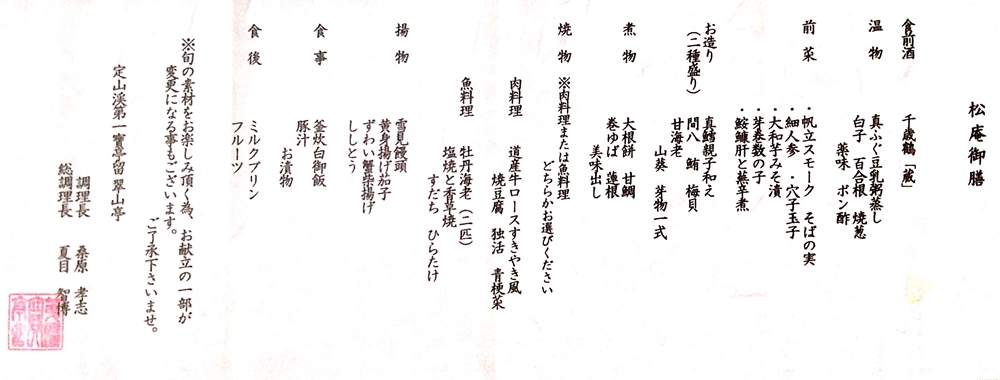 松庵御膳
食前酒 千歳鶴「蔵」
温物 真ふぐ豆乳粥蒸し
白子 百合根 焼葱
薬味 ポン酢
前菜 ・帆立スモーク そばの実
・細人参 ・穴子玉子
・大和芋みそ漬
・芽巻数の子
・鮟鱇肝と藝辛煮
お造り 真鱈親子和え
(二種盛り) 間八 鮪 梅貝
甘海老
山葵 芽物一式
煮物 大根餅 甘鯛
巻ゆば 蓮根
美味出し
焼物 ※肉料理または魚料理
どちらかお選びください
肉料理 道産牛ロースすきやき風
焼豆腐 独活 青梗菜
魚料理 牡丹海老(二匹)
塩焼と香草焼
すだち ひらたけ
揚物 雪見饅頭
黄身揚げ茄子
ずわい蟹柴揚げ
ししとう
食事 釜炊白御飯
豚汁
お漬物
食後 ミルクプリン
フルーツ
※旬の素材をお楽しみ頂く為、お献立の一部が
変更になる事もございます。
ご了承下さいませ。
定山渓第一寶亭留 翠山亭
調理長 桑原 孝志
総調理長 夏目 智博